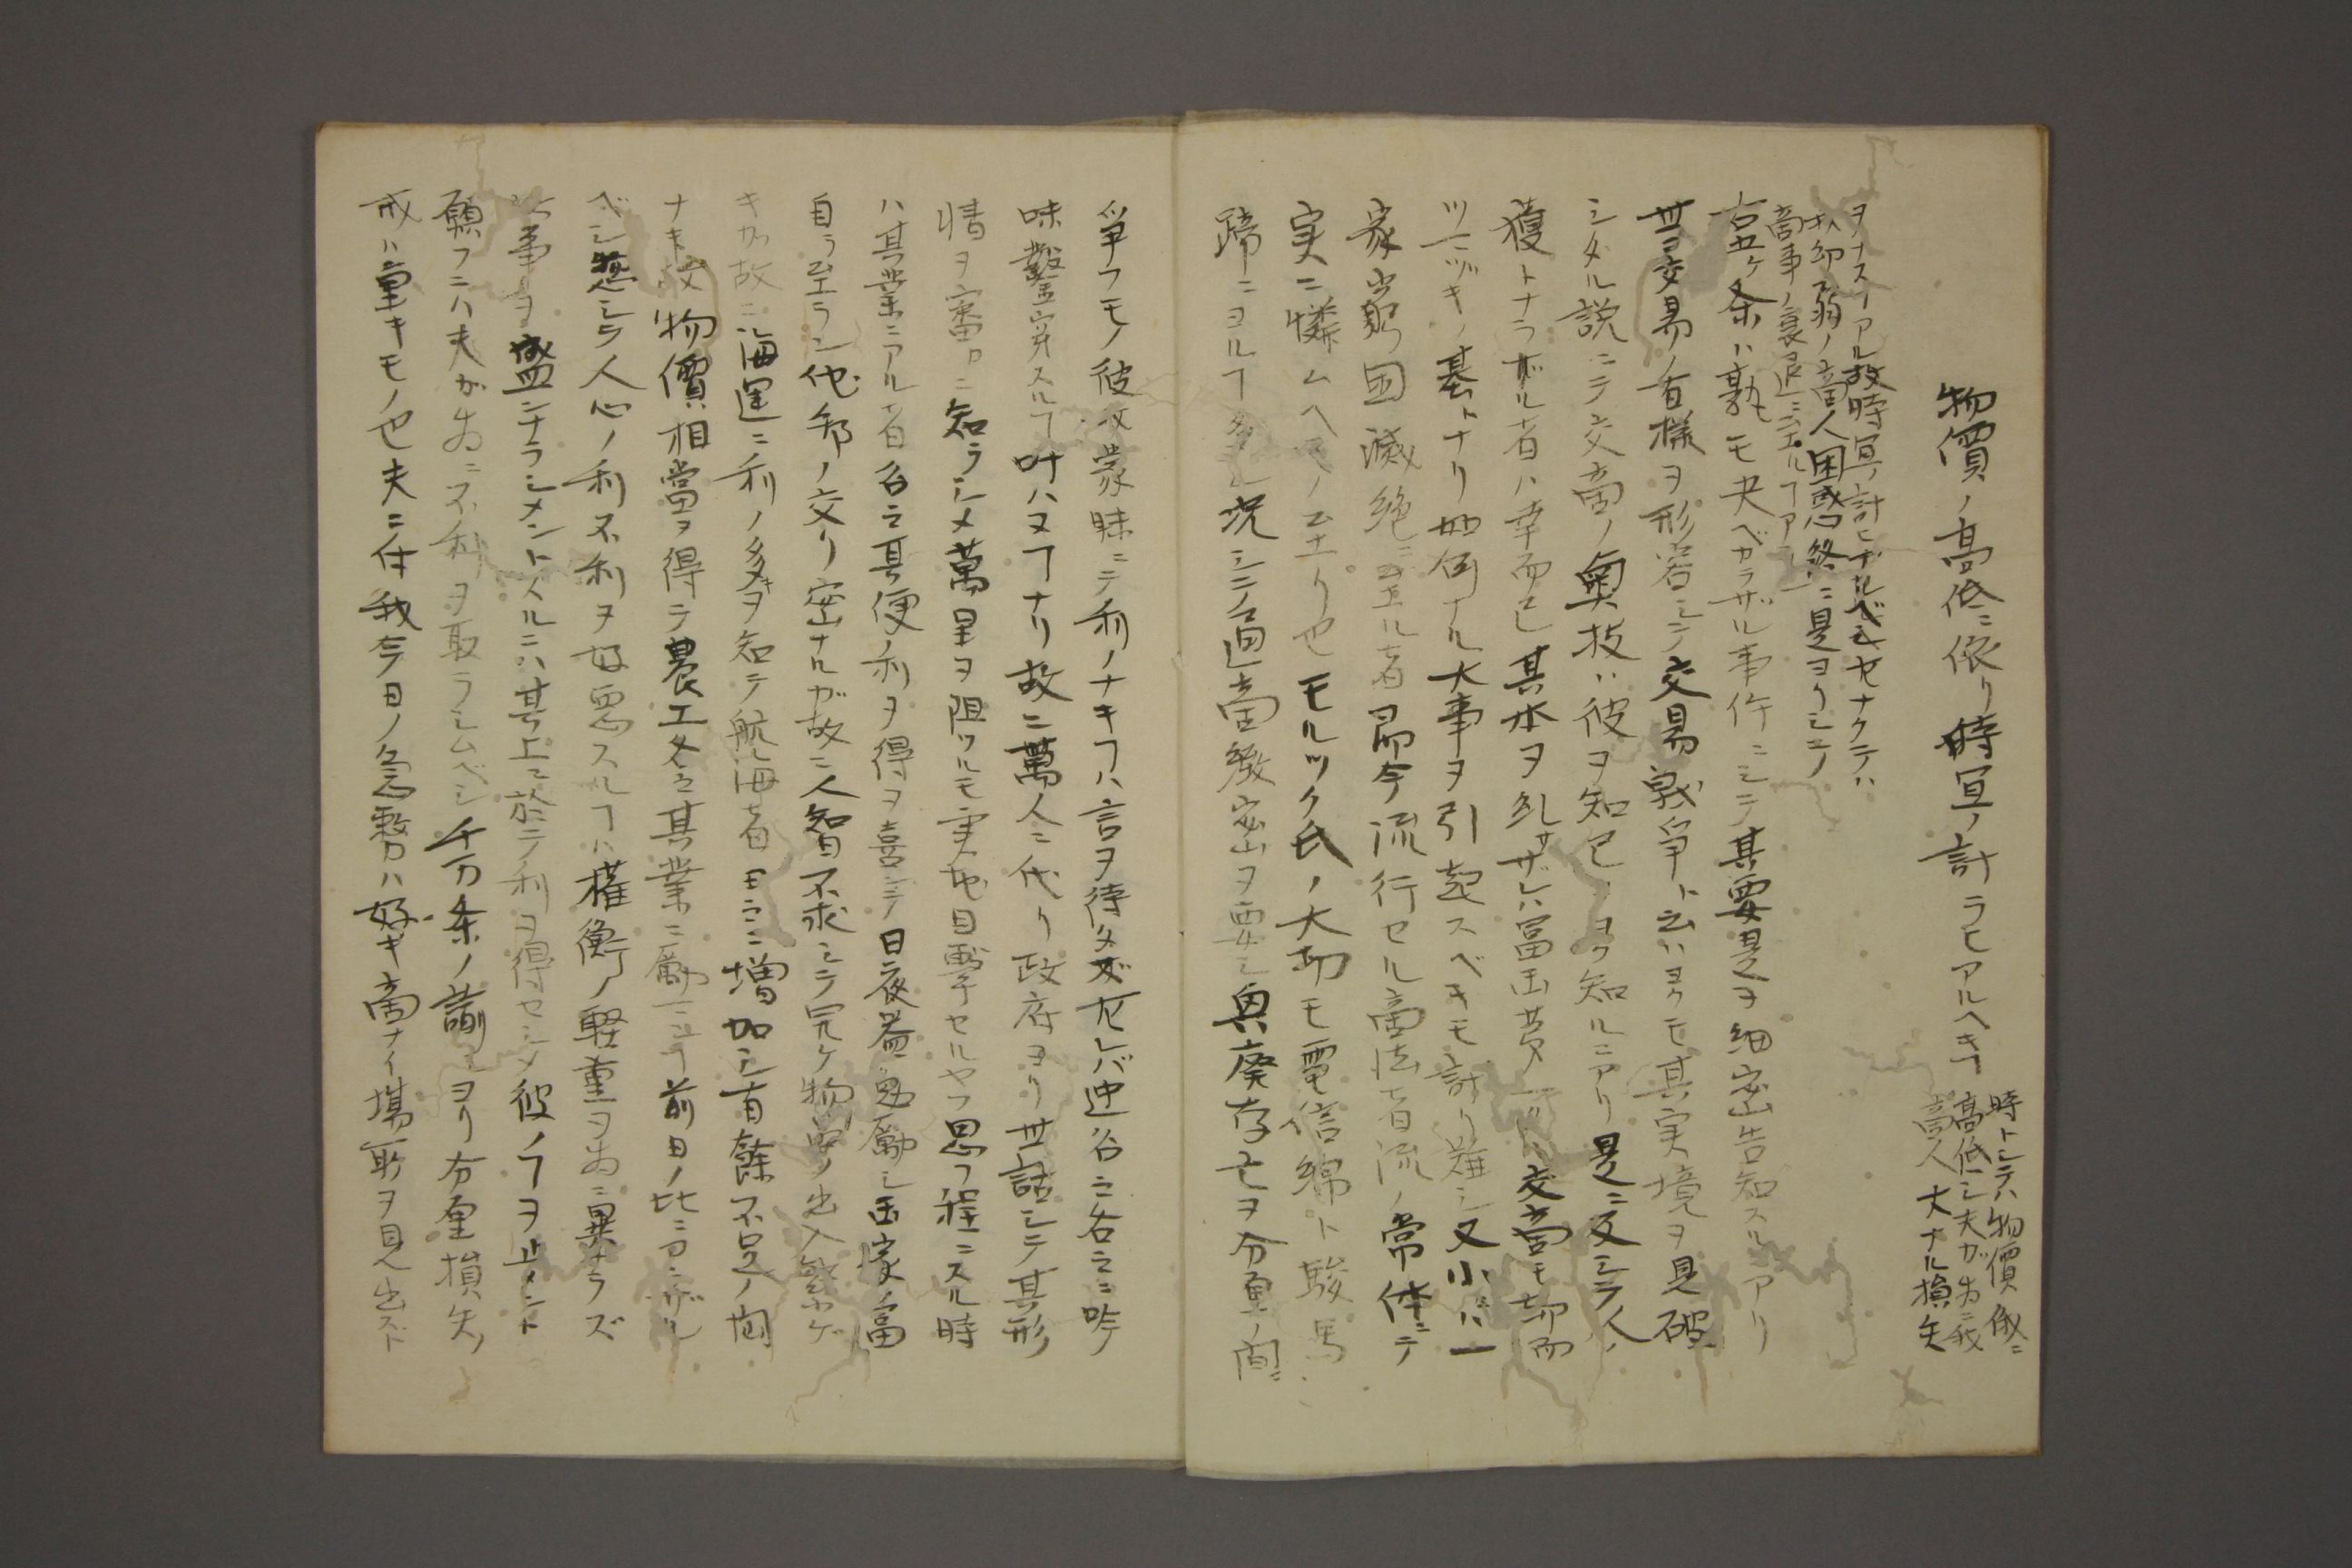 物價ノ高低ニ依リ時宜ノ計ラヒアルヘキヿ
時トシテハ物價俄ニ
高低シ夫ガ為ニ我
商人大ナル損失
ヲナスヿアル故時宜ノ計ヒナルベキヤナクテハ
我幼弱ノ商人困惑終ニ是ヨリシテ
商事ノ衰退ニ至ルヿアラン
右五ケ条ハ孰モ欠ベカラザル事件ニシテ其要是ヲ細密告知スルニアリ
世ヨ交易ノ有様ヲ形容シテ交易戦争ト云ハヨクモ其実境ヲ見破
シタル説ニテ交商ノ奥技ハ彼ヲ知己ノヨク知ルニアリ是ニ反シテ人ノ
獲トナラザル者ハ幸而已其本ヲ糺サザレハ富国夢 交商モ切而
ツニツキノ基トナリ如何ナル大事ヲ引起スベキモ計リ難シ又小ハ一
家ノ窮困滅絶ニ至ル者即今流行セル商法者流ノ常体ニテ
実ニ憐ムヘキノ至リ也モルツク氏ノ大切モ電信綿ト駿馬ノ
蹄ニヨルヿ多シ況シテ通商緻密ヲ要シ興廃存亡ヲ分厘ノ間ニ
争フモノ彼我蒙昧ニテ利ノナキヿハ言ヲ待タズ左レバ速谷ニ各々ニ吟
味鑿穿スルヿ叶ハヌヿナリ故ニ萬人ニ代リ政府ヨリ世話シテ其形
情ヲ審カニ知ラシメ萬里ヲ阻ツルモ実地目撃セルヤフ思フ程ニスル時
ハ其業ニアル者各々其便ノ利ヲ得ヲ喜シテ日夜益勉勵シ国家ノ富
自ラ至ラン他邦ノ交リ密ナルガ故ニ人智不求シテ開ケ物品ノ出入繁ケ
キカ故ニ海運ニ利ノ多キヲ知テ航海者日ニ増加シ有餘不足ノ間
ナキ故物價相當ヲ得テ農工各々其業ニ勵ミ 前日ノ比ニアラザル
ベシ惣シテ人心ノ利不利ヲ好悪スルヿハ權衡ノ軽重ヲ為ニ異ナラズ
此事ヲ盛ンナラシメントスルニハ其上ニ於テ利ヲ得セシメ彼ノヿヲ止メント
願フニハ夫が為ニ不利ヲ取ラシムベシ千万条ノ諭ヨリ分厘損失ノ
戒ハ重キモノ也夫ニ付我今日ノ急務ハ好キ商ナイ場所ヲ見出スト